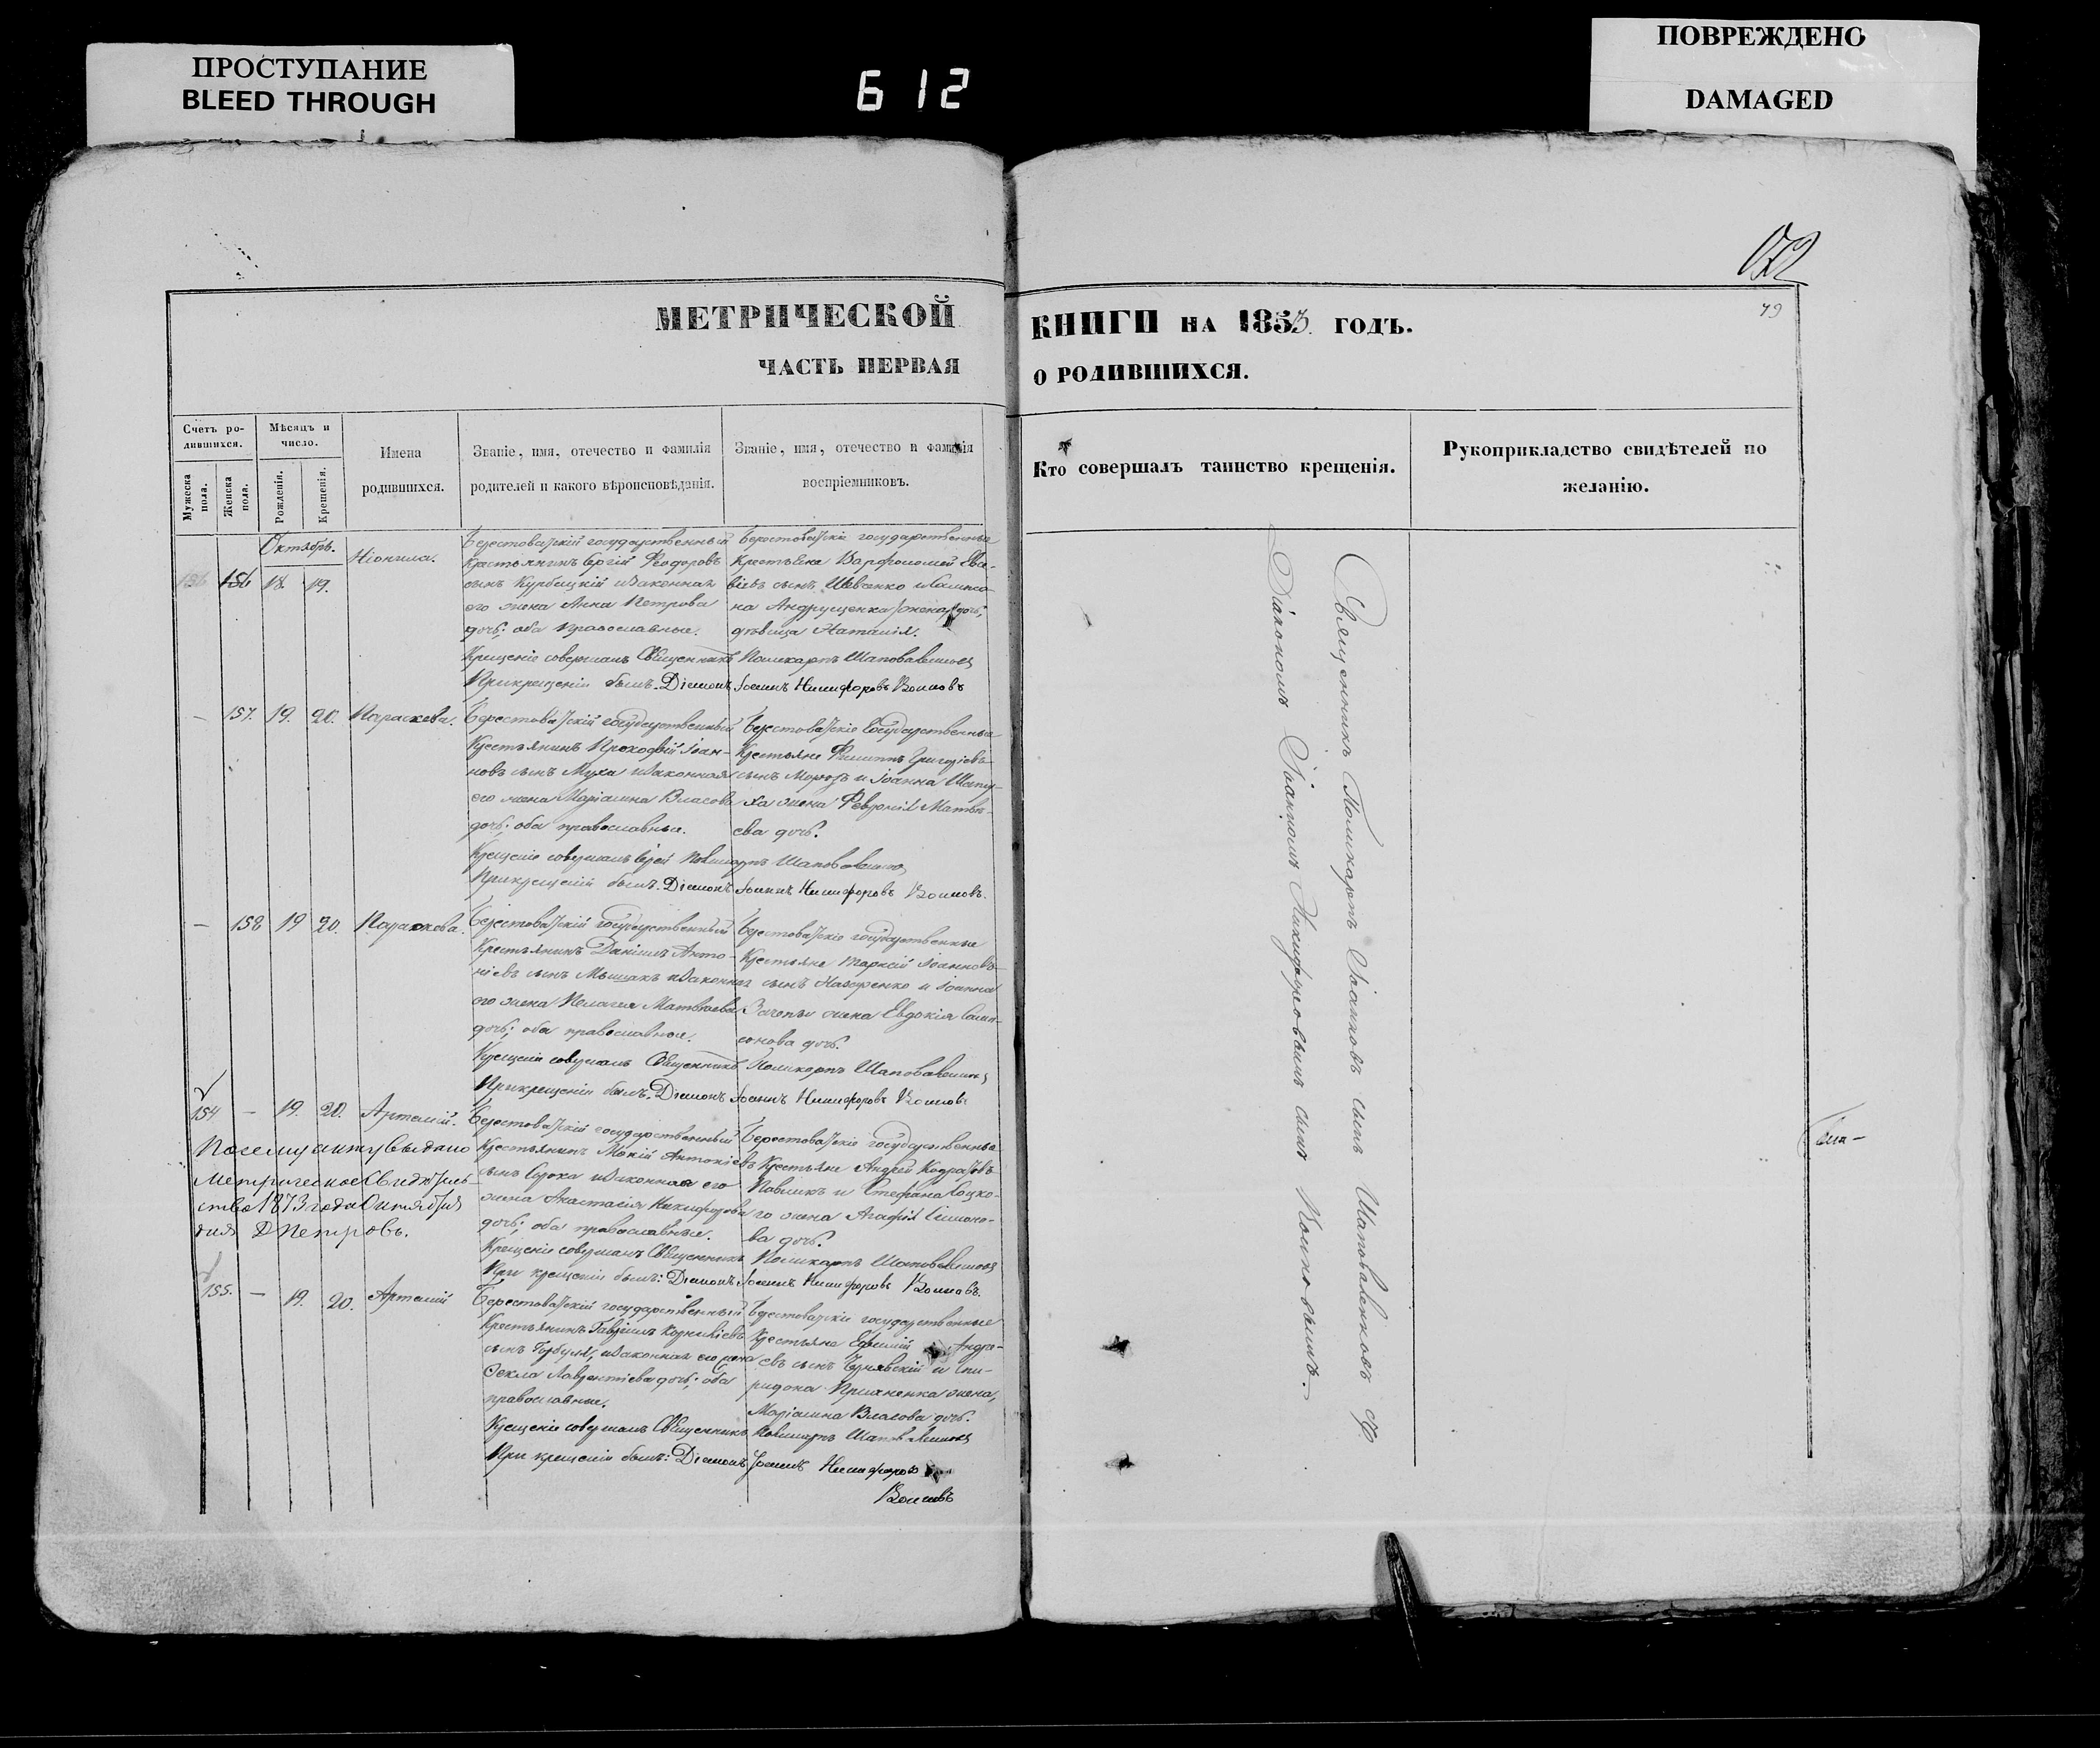 ПРОСТУПАНИЕ
BLEED THROUGH
612
ПОВРЕЖДЕНО
DAMAGED
79
МЕТРИЧЕСКОЙ
КНИГИ НА 1853. ГОДЪ.
ЧАСТЬ ПЕРВАЯ
О РОДИВШИХСЯ.
Счетъ ро-
дившихся.
Мужеска
пола.
Женска
пола.
Мѣсяцъ и
число.
Рожденія.
Крещенія.
Имена
родившихся.
Званіе, имя, отечество и фамилія
родителей и какого вѣроисповѣданія.
Званіе, имя, отечество и фамилія
воспріемниковъ.
Кто совершалъ таинство крещенія.
Рукоприкладство свидѣтелей по
желанію.
Октябрь.
156 18. 19.
Ніонила.
Берестоватскій государственный
Крестьянинъ Сергій Феодоровъ
сынъ Курбацкій и законная
его жена Анна Петрова
дочь; оба православные.
Берестоватскіе государственные
Крестьяне Варфоломей
сынъ Шевченко и
на Андрущенка жена дочь,
дѣвица Наталія.
Крещеніе совершалъ Священникъ Поликарпъ Шаповаленковъ
При крещеніи былъ: Діаконъ Іоаннъ Никифоровъ
— 157. 19. 20. Параскева.
Берестоватскій государственный
Крестьянинъ Прокофій Іоан-
новъ сынъ Муха и законная
его жена Маріанна Власова
дочь; оба православные.
Берестоватскіе Государственные
Крестьяне Филиппъ Григоріевъ
сынъ Морозъ и Іоанна
жена Февронія Матвѣ-
ева дочь.
Крещеніе совершалъ Іерей Поликарпъ Шаповаленко
При крещеніи былъ: Діаконъ Іоаннъ Никифоровъ
— 158 19 20. Параскева.
Берестоватскій государственный
Крестьянинъ Даніилъ Анто-
ніевъ сынъ и законная
его жена Пелагея Матвѣева
дочь; оба православные.
Берестоватскіе государственные
Крестьяне Тарасій Іоанновъ
сынъ Назаренко и Іоанна
жена Евдокія Самп-
сонова дочь.
Крещеніе совершалъ Священникъ Поликарпъ Шаповаленковъ
При крещеніи былъ: Діаконъ Іоаннъ Никифоровъ
154 — 19. 20. Артемій.
Берестоватскій государственный
Крестьянинъ Мокій Антоніевъ
сынъ Сорока и законная его
жена Анастасія Никифорова
дочь; оба православные.
Берестоватскіе государственные
Крестьяне Андрей
Павликъ и Стефана Соцко-
го жена Агафія Симоно-
ва дочь.
По сему акту выдано
Метрическое Свидѣтель-
ство 1873 года Октября
дня Д Петровъ.
Крещеніе совершалъ Священникъ Поликарпъ Шаповаленковъ
При крещеніи былъ: Діаконъ Іоаннъ Никифоровъ
155. — 19. 20. Артемій
Берестоватскій государственный
Крестьянинъ Гавріилъ Корниліевъ
сынъ Горбуля, и законная его жена
Фекла Лаврентіева дочь; оба
православные.
Берестоватскіе государственные
Крестьяне Ефимій Андре-
евъ сынъ Чернявскій и Спи-
ридона жена,
Маріанна Власова дочь.
Крещеніе совершалъ Священникъ Поликарпъ Шаповаленковъ
При крещеніи былъ: Діаконъ Іоаннъ Никифоровъ
Священникъ Поликарпъ Іоанновъ сынъ Шаповаленковъ съ
Діакономъ Іоанномъ Никифоровымъ сыномъ